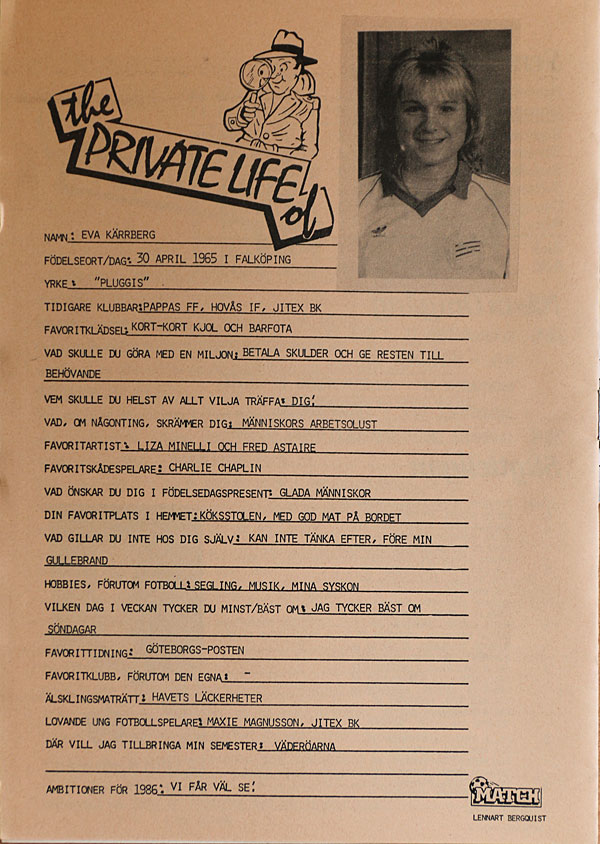 the
PRIVATE LIFE
of
NAMN: EVA KÄRRBERG
FÖDELSEORT/DAG: 30 APRIL 1965 I FALKÖPING
YRKE: "PLUGGIS"
TIDIGARE KLUBBAR: PAPPAS FF, HOVÅS IF, JITEX BK
FAVORITKLÄDSEL: KORT-KORT KJOL OCH BARFOTA
VAD SKULLE DU GÖRA MED EN MILJON: BETALA SKULDER OCH GE RESTEN TILL
BEHÖVANDE
VEM SKULLE DU HELST AV ALLT VILJA TRÄFFA: DIG!
VAD, OM NÅGONTING, SKRÄMMER DIG: MÄNNISKORS ARBETSOLUST
FAVORITARTIST: LIZA MINELLI OCH FRED ASTAIRE
FAVORITSKÅDESPELARE: CHARLIE CHAPLIN
VAD ÖNSKAR DU DIG I FÖDELSEDAGSPRESENT: GLADA MÄNNISKOR
DIN FAVORITPLATS I HEMMET: KÖKSSTOLEN, MED GOD MAT PÅ BORDET
VAD GILLAR DU INTE HOS DIG SJÄLV: KAN INTE TÄNKA EFTER, FÖRE MIN
GULLEBRAND
HOBBIES, FÖRUTOM FOTBOLL: SEGLING, MUSIK, MINA SYSKON
VILKEN DAG I VECKAN TYCKER DU MINST/BÄST OM: JAG TYCKER BÄST OM
SÖNDAGAR
FAVORITTIDNING: GÖTEBORGS-POSTEN
FAVORITKLUBB, FÖRUTOM DEN EGNA: -
ÄLSKLINGSMATRÄTT: HAVETS LÄCKERHETER
LOVANDE UNG FOTBOLLSPELARE: MAXIE MAGNUSSON, JITEX BK
DÄR VILL JAG TILLBRINGA MIN SEMESTER: VÄDERÖARNA
AMBITIONER FÖR 1986: VI FÅR VÄL SE!
MATCH
LENNART BERGQUIST